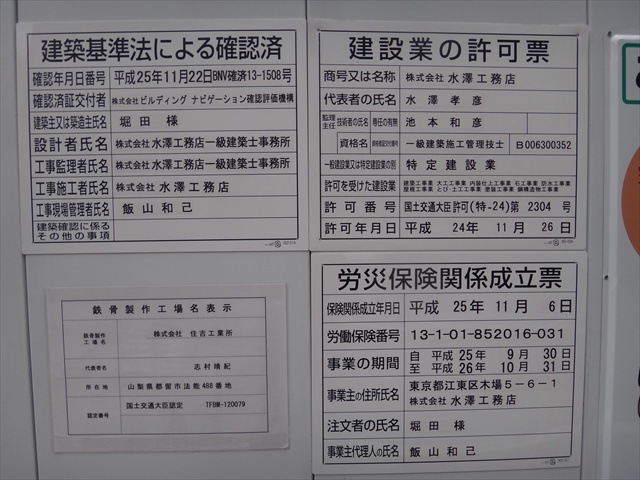 建築基準法による確認済
確認年月日番号 平成25年11月22日BNV確済13-1508号
確認済証交付者 株式会社 ビルディング ナビゲーション確認評価機構
建築主又は築造主氏名 堀田 様
設計者氏名 株式会社 水澤工務店一級建築士事務所
工事監理者氏名 株式会社 水澤工務店一級建築士事務所
工事施工者氏名 株式会社 水澤工務店
工事現場管理者氏名 飯山和己
建築確認に係る
その他の事項
建設業の許可票
商号又は名称 株式会社 水澤工務店
代表者の氏名 水澤孝彦
監理
主任 技術者の氏名 専任の有無 池本和彦
資格名 資格者証交付番号 一級建築施工管理技士 B006300352
一般建設業又は特定建設業の別 特定建設業
許可を受けた建設業 建築工事業 大工工事業 内装仕上工事業 石工事業 防水工事業
屋根工事業 とび・土工工事業 塗装工事業 鋼構造物工事業
許可番号 国土交通大臣 許可(特-24)第 2304 号
許可年月日 平成 24年 11月 26日
鉄骨製作工場名表示
鉄骨製作
工場名 株式会社 住吉工業所
代表者名 志村晴紀
所在地 山梨県都留市法能488番地
認定番号 国土交通大臣認定 TFBM-120079
労災保険関係成立票
保険関係成立年月日 平成 25年 11月 6日
労働保険番号 13-1-01-852016-031
事業の期間 自 平成 25年 9月 30日
至 平成 26年 10月 31日
事業主の住所氏名 東京都江東区木場5-6-1
株式会社 水澤工務店
注文者の氏名 堀田 様
事業主代理人の氏名 飯山和己